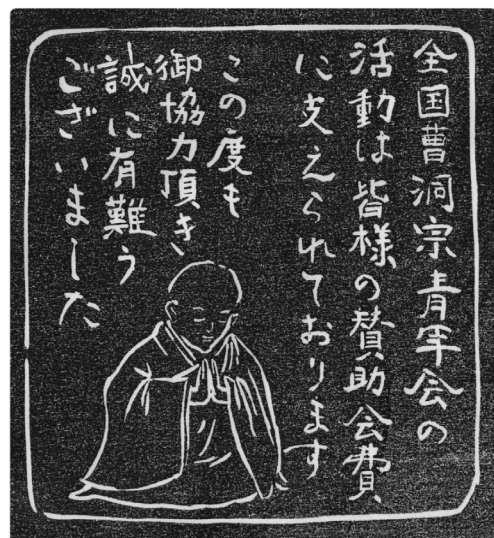 全国曹洞宗青年会の
活動は皆様の賛助会費
に支えられております
この度も
御協力頂き、
誠に有難う
ございました